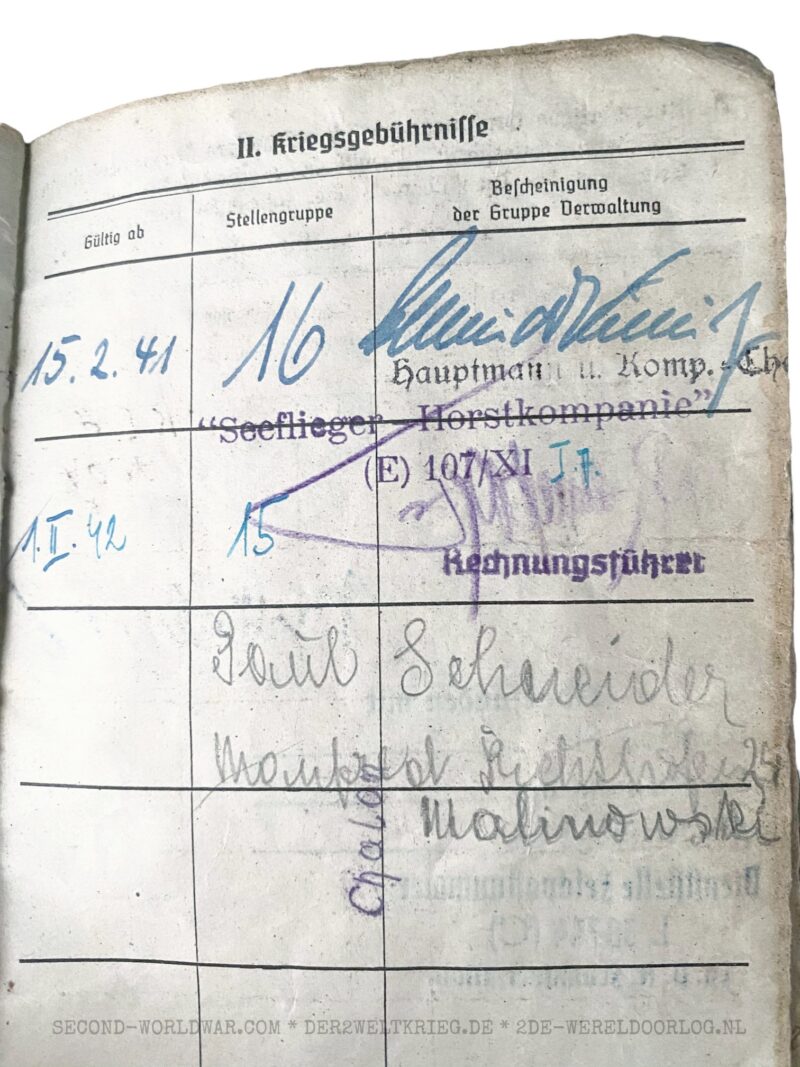 II. Kriegsgebührnisse
Gültig ab
Stellengruppe
Bescheinigung
der Gruppe Verwaltung
15.2.41
16
Hauptmann u. Komp.-Che
"Seeflieger - Horstkompanie"
(E) 107/XI
1.II.42
15
Rechnungsführer
Paul Schneider
Manfred
Malinowski
Chalon
SECOND-WORLDWAR.COM * DER2WELTKRIEG.DE * 2DE-WERELDOORLOG.NL